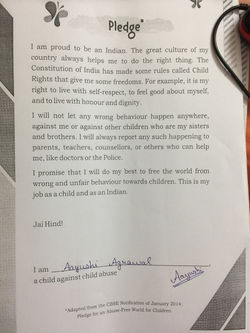 Pledge*
I am proud to be an Indian. The great culture of my
country always helps me to do the right thing. The
Constitution of India has made some rules called Child
Rights that give me some freedoms. For example, it is my
right to live with self-respect, to feel good about myself,
and to live with honour and dignity.
I will not let any wrong behaviour happen anywhere,
against me or against other children who are my sisters
and brothers. I will always report any such happening to
parents, teachers, counsellors, or others who can help
me, like doctors or the Police.
I promise that I will do my best to free the world from
wrong and unfair behaviour towards children. This is my
job as a child and as an Indian.
Jai Hind!
I am Aayushi Agrawal
a child against child abuse
Aayushi
*Adapted from the CBSE Notification of January 2014
Pledge for an Abuse-Free World for Children